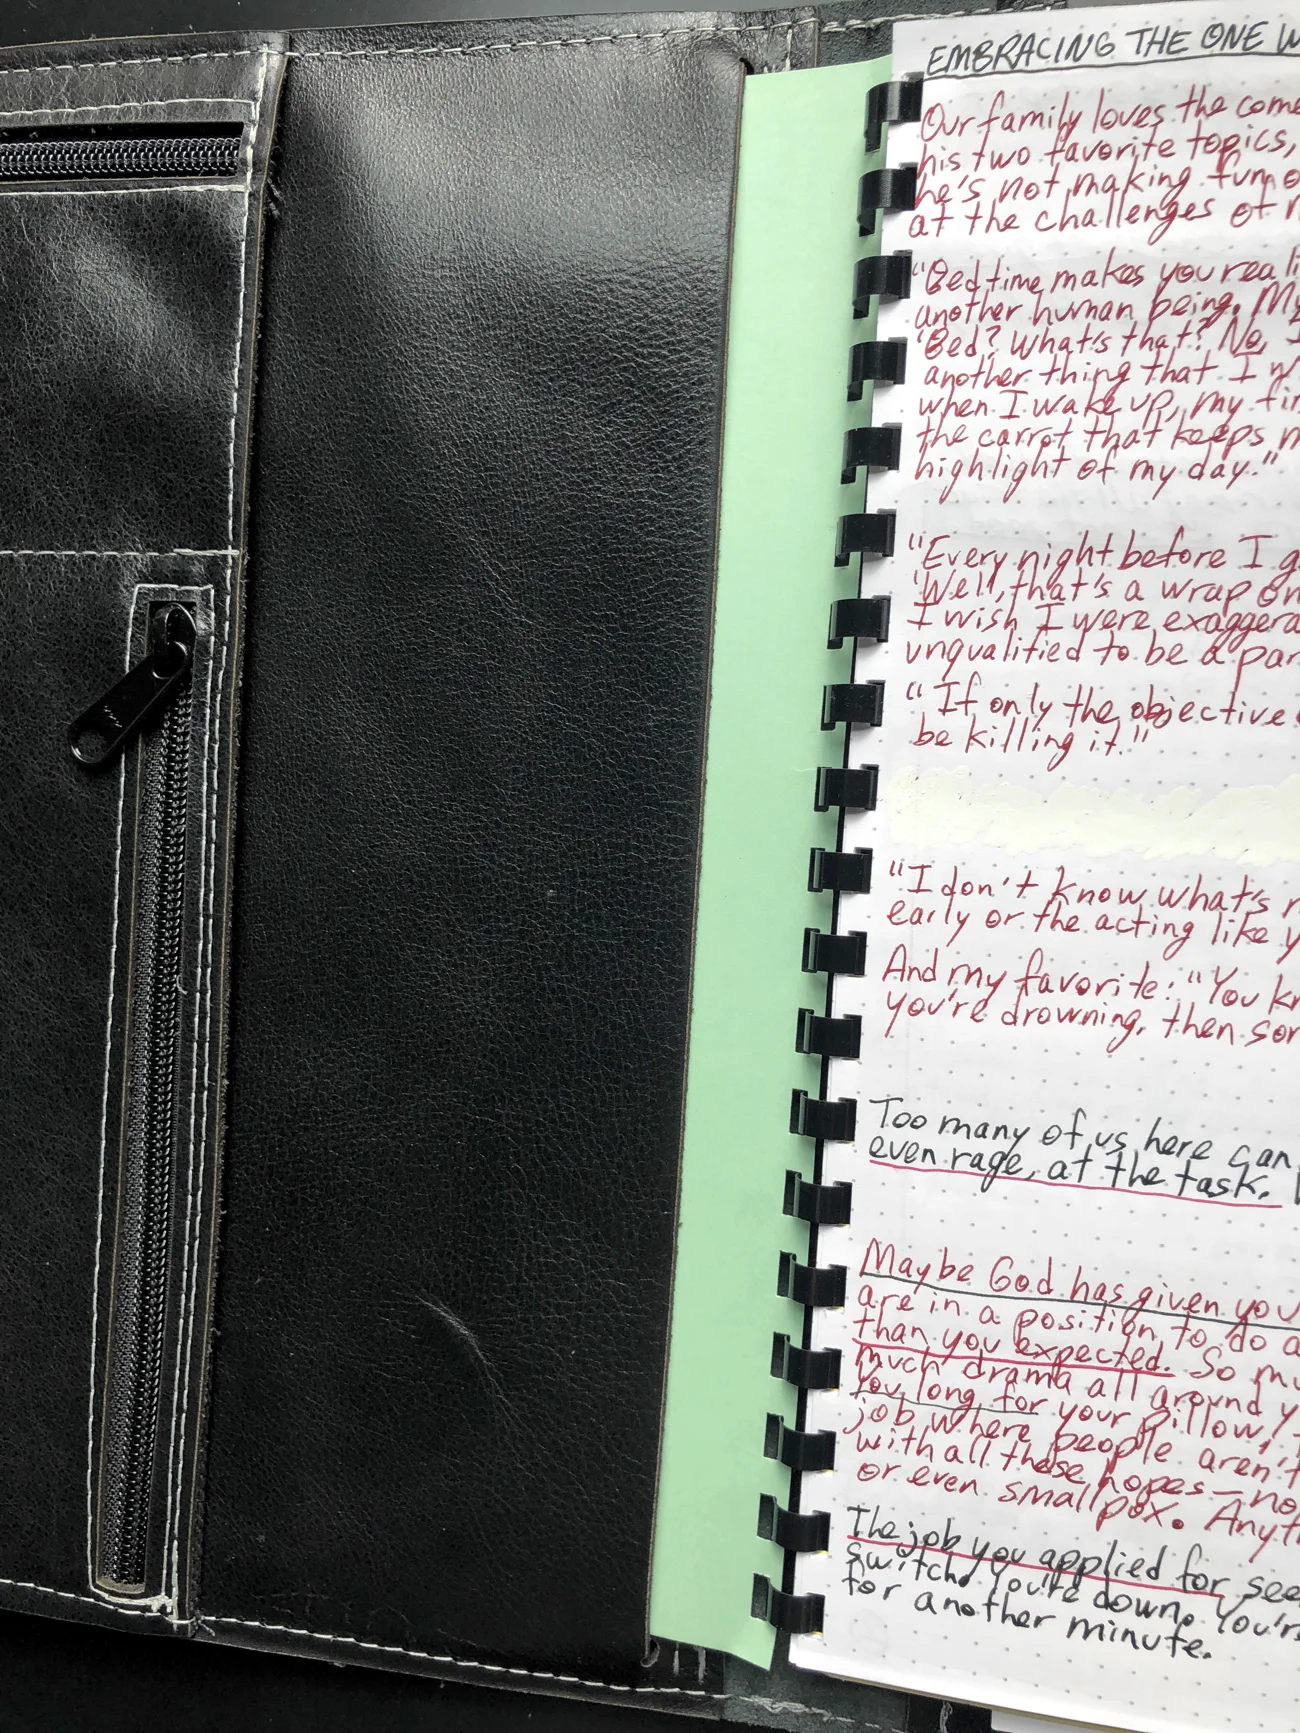 EMBRACING THE ONE
Our family loves the
his two favorite topics,
he's not making fun
at the challenges of
"Bedtime makes you
another human being.
'Bed? What's that? No,
another thing that I
when I wake up, my
the carrot that keeps
highlight of my day."
"Every night before I
'Well, that's a wrap on
I wish I were
unqualified to be a
"If only the objective
be killing it."
"I don't know what's
early or the acting like
And my favorite: "You
you're drowning, then
Too many of us here can
even rage, at the task.
Maybe God has given you
are in a position to do
than you expected. So
much drama all around
You long for your pillow,
job where people aren't
with all these hopes—
or even smallpox.
The job you applied for
switch. You're down.
for another minute.